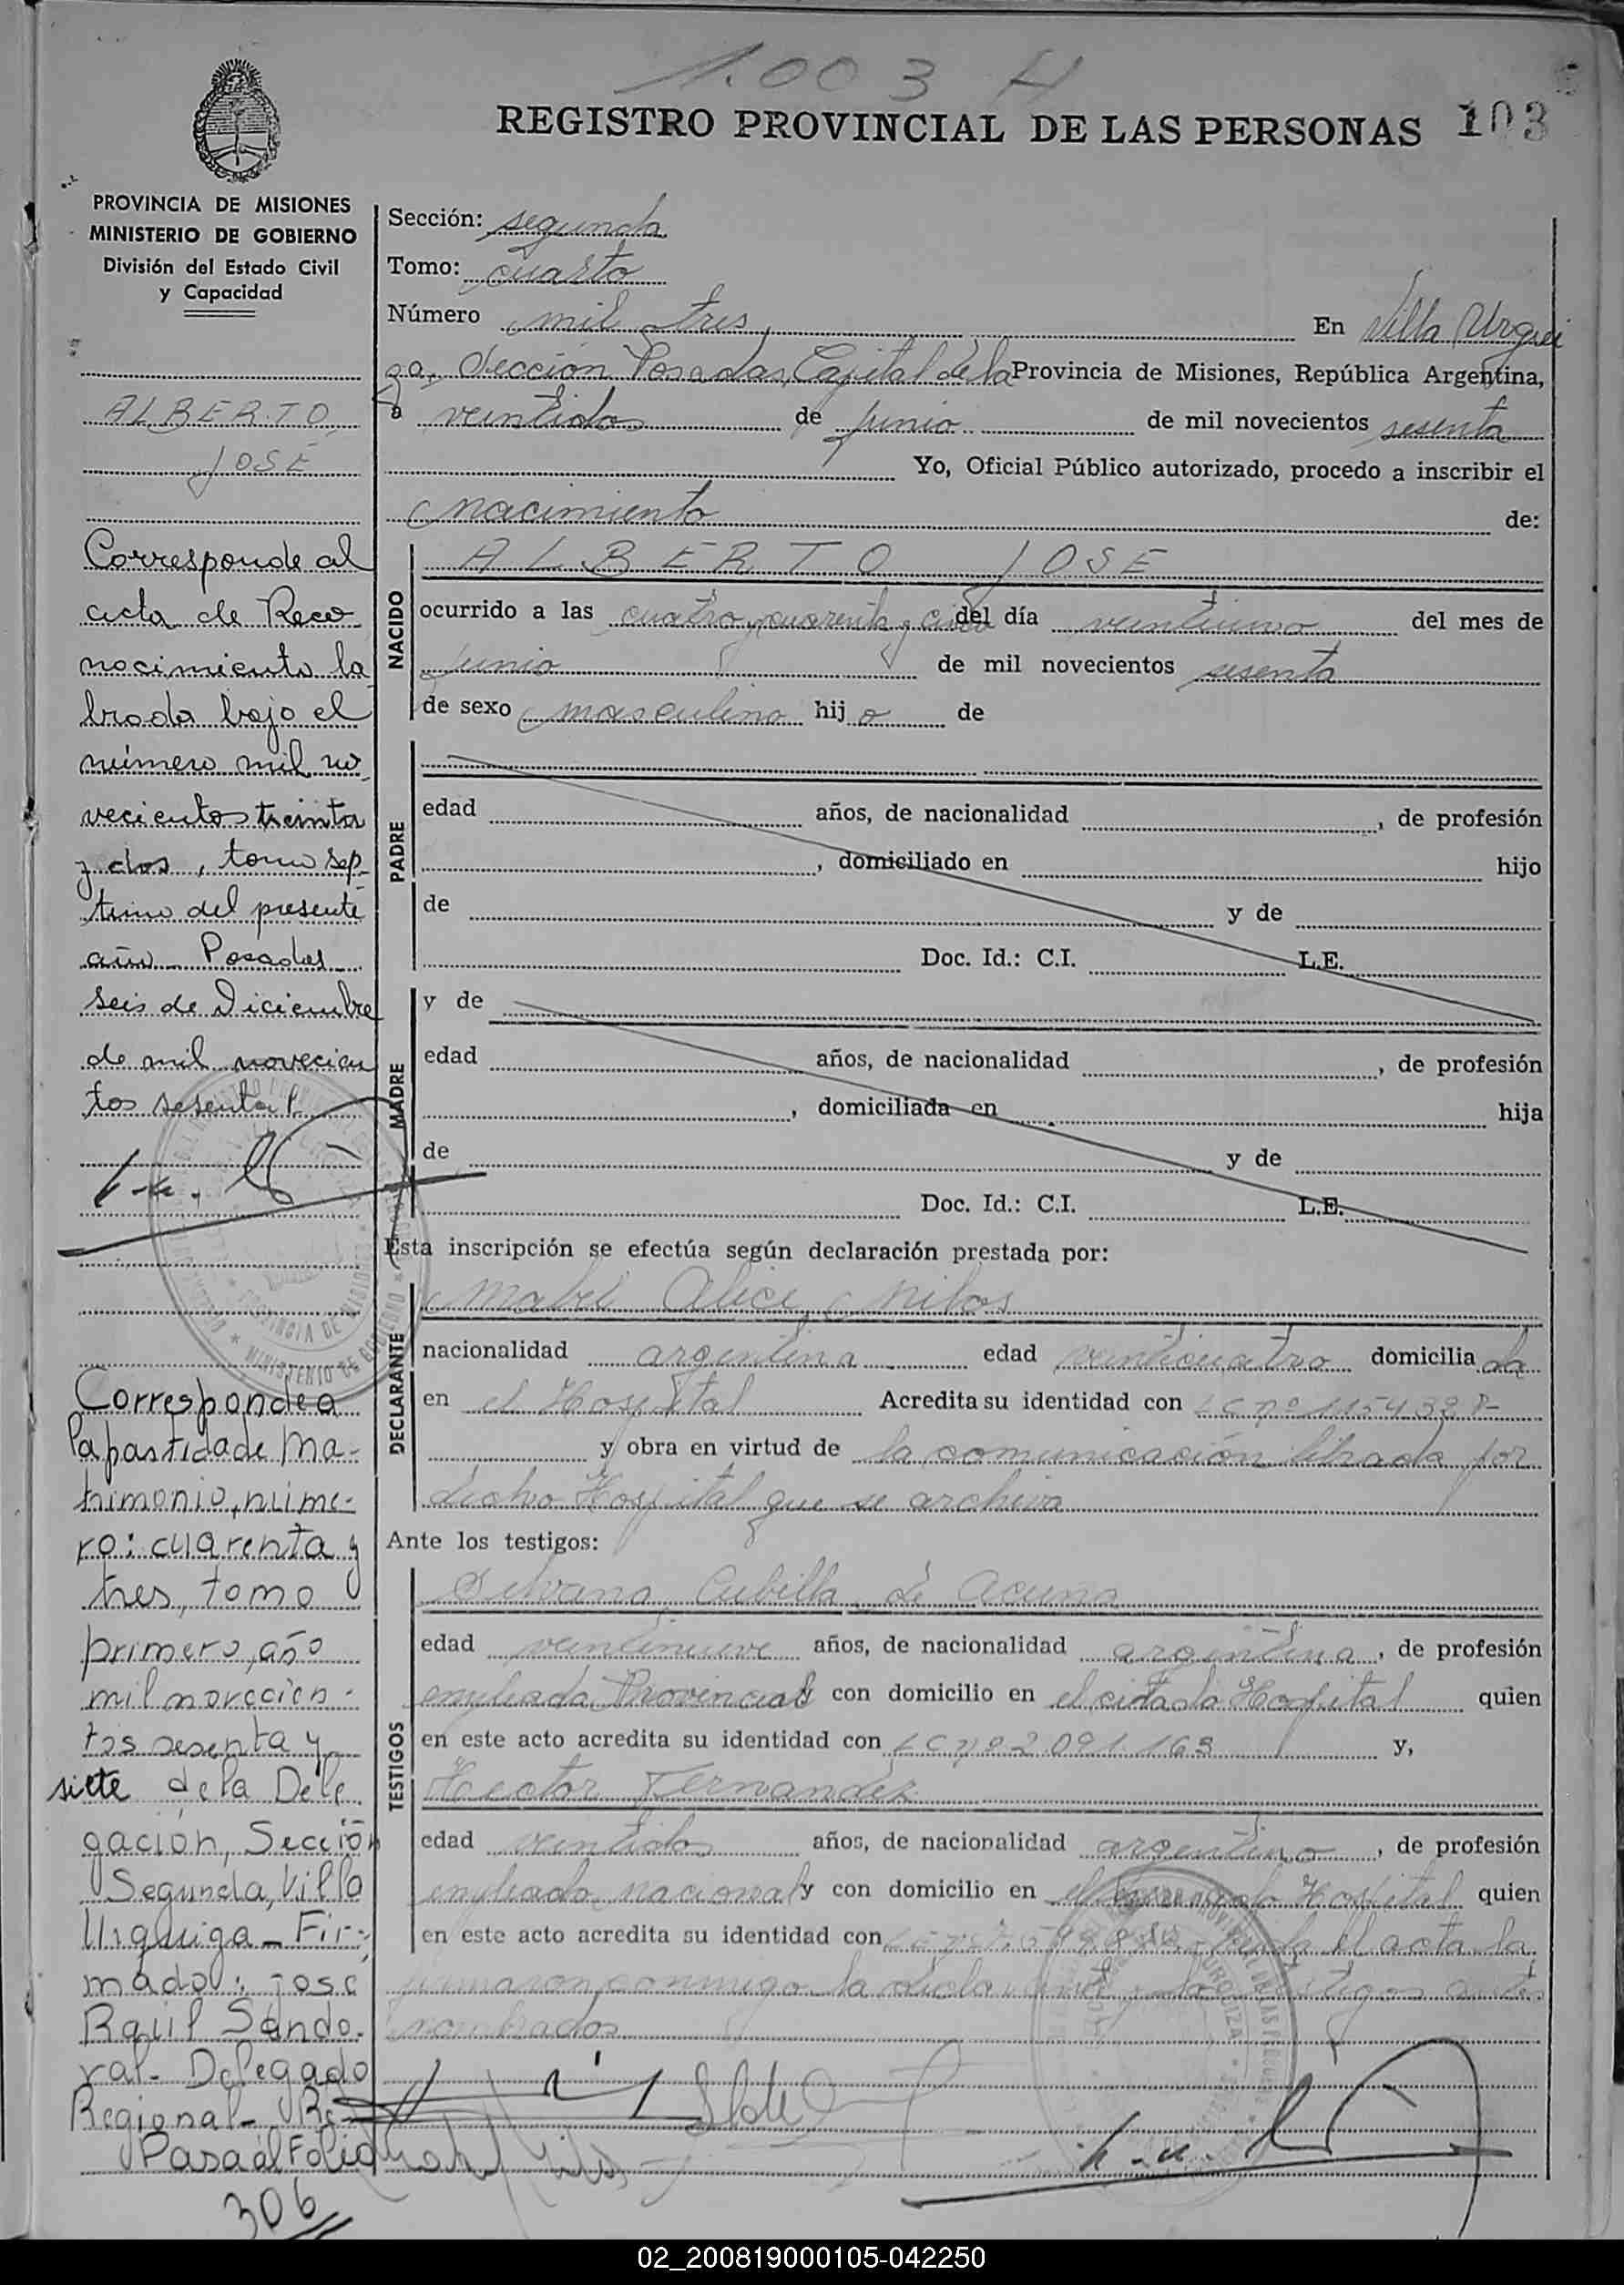 1.003 H
REGISTRO PROVINCIAL DE LAS PERSONAS 103
PROVINCIA DE MISIONES
MINISTERIO DE GOBIERNO
División del Estado Civil
y Capacidad
ALBERTO
JOSE
Corresponde al
acta de Reco
nocimiento la
brada bajo el
número mil no
vecientos treinta
y dos, tomo sép
timo del presente
año Posadas
seis de Diciembre
de mil novecien
tos sesenta
Corresponde a
la partida de Ma-
trimonio, núme-
ro: cuarenta y
tres, tomo
primero, año
mil novecien-
tos sesenta y
siete de la Dele
gación, Sección
Segunda, Villa
Urquiza - Fir-
mado: jose
Raúl Sando-
val - Delegado
Regional -
Pasa al Folio
306
Sección: segunda
Tomo: cuarto
Número mil tres, En Villa Urqui
za, Sección Posadas, Capital de la Provincia de Misiones, República Argentina,
a veintidos de junio de mil novecientos sesenta
Yo, Oficial Público autorizado, procedo a inscribir el
nacimiento de:
NACIDO
ALBERTO JOSE
ocurrido a las cuatro y cuarenta y cinco del día veintiuno del mes de
junio de mil novecientos sesenta
de sexo masculino hijo de
PADRE
edad años, de nacionalidad , de profesión
, domiciliado en hijo
de y de
Doc. Id.: C.I. L.E.
MADRE
y de
edad años, de nacionalidad , de profesión
, domiciliada en hija
de y de
Doc. Id.: C.I. L.E.
Esta inscripción se efectúa según declaración prestada por:
DECLARANTE
Mabel Alice Milos
nacionalidad argentina edad veinticuatro domiciliada
en el Hospital Acredita su identidad con LC nº 1154.328-
y obra en virtud de la comunicación librada por
dicho Hospital que se archiva
Ante los testigos:
TESTIGOS
Silvana Cubilla de Acuna
edad veintinueve años, de nacionalidad argentina, de profesión
empleada Provincial y con domicilio en el citado Hospital quien
en este acto acredita su identidad con LC nº 2.091.163 y,
Hector Fernandez
edad veintidos años, de nacionalidad argentino, de profesión
empleado nacional y con domicilio en el Hospital quien
en este acto acredita su identidad con el acta la
firmaron conmigo la testigos antes
nombrados
02_200819000105-042250